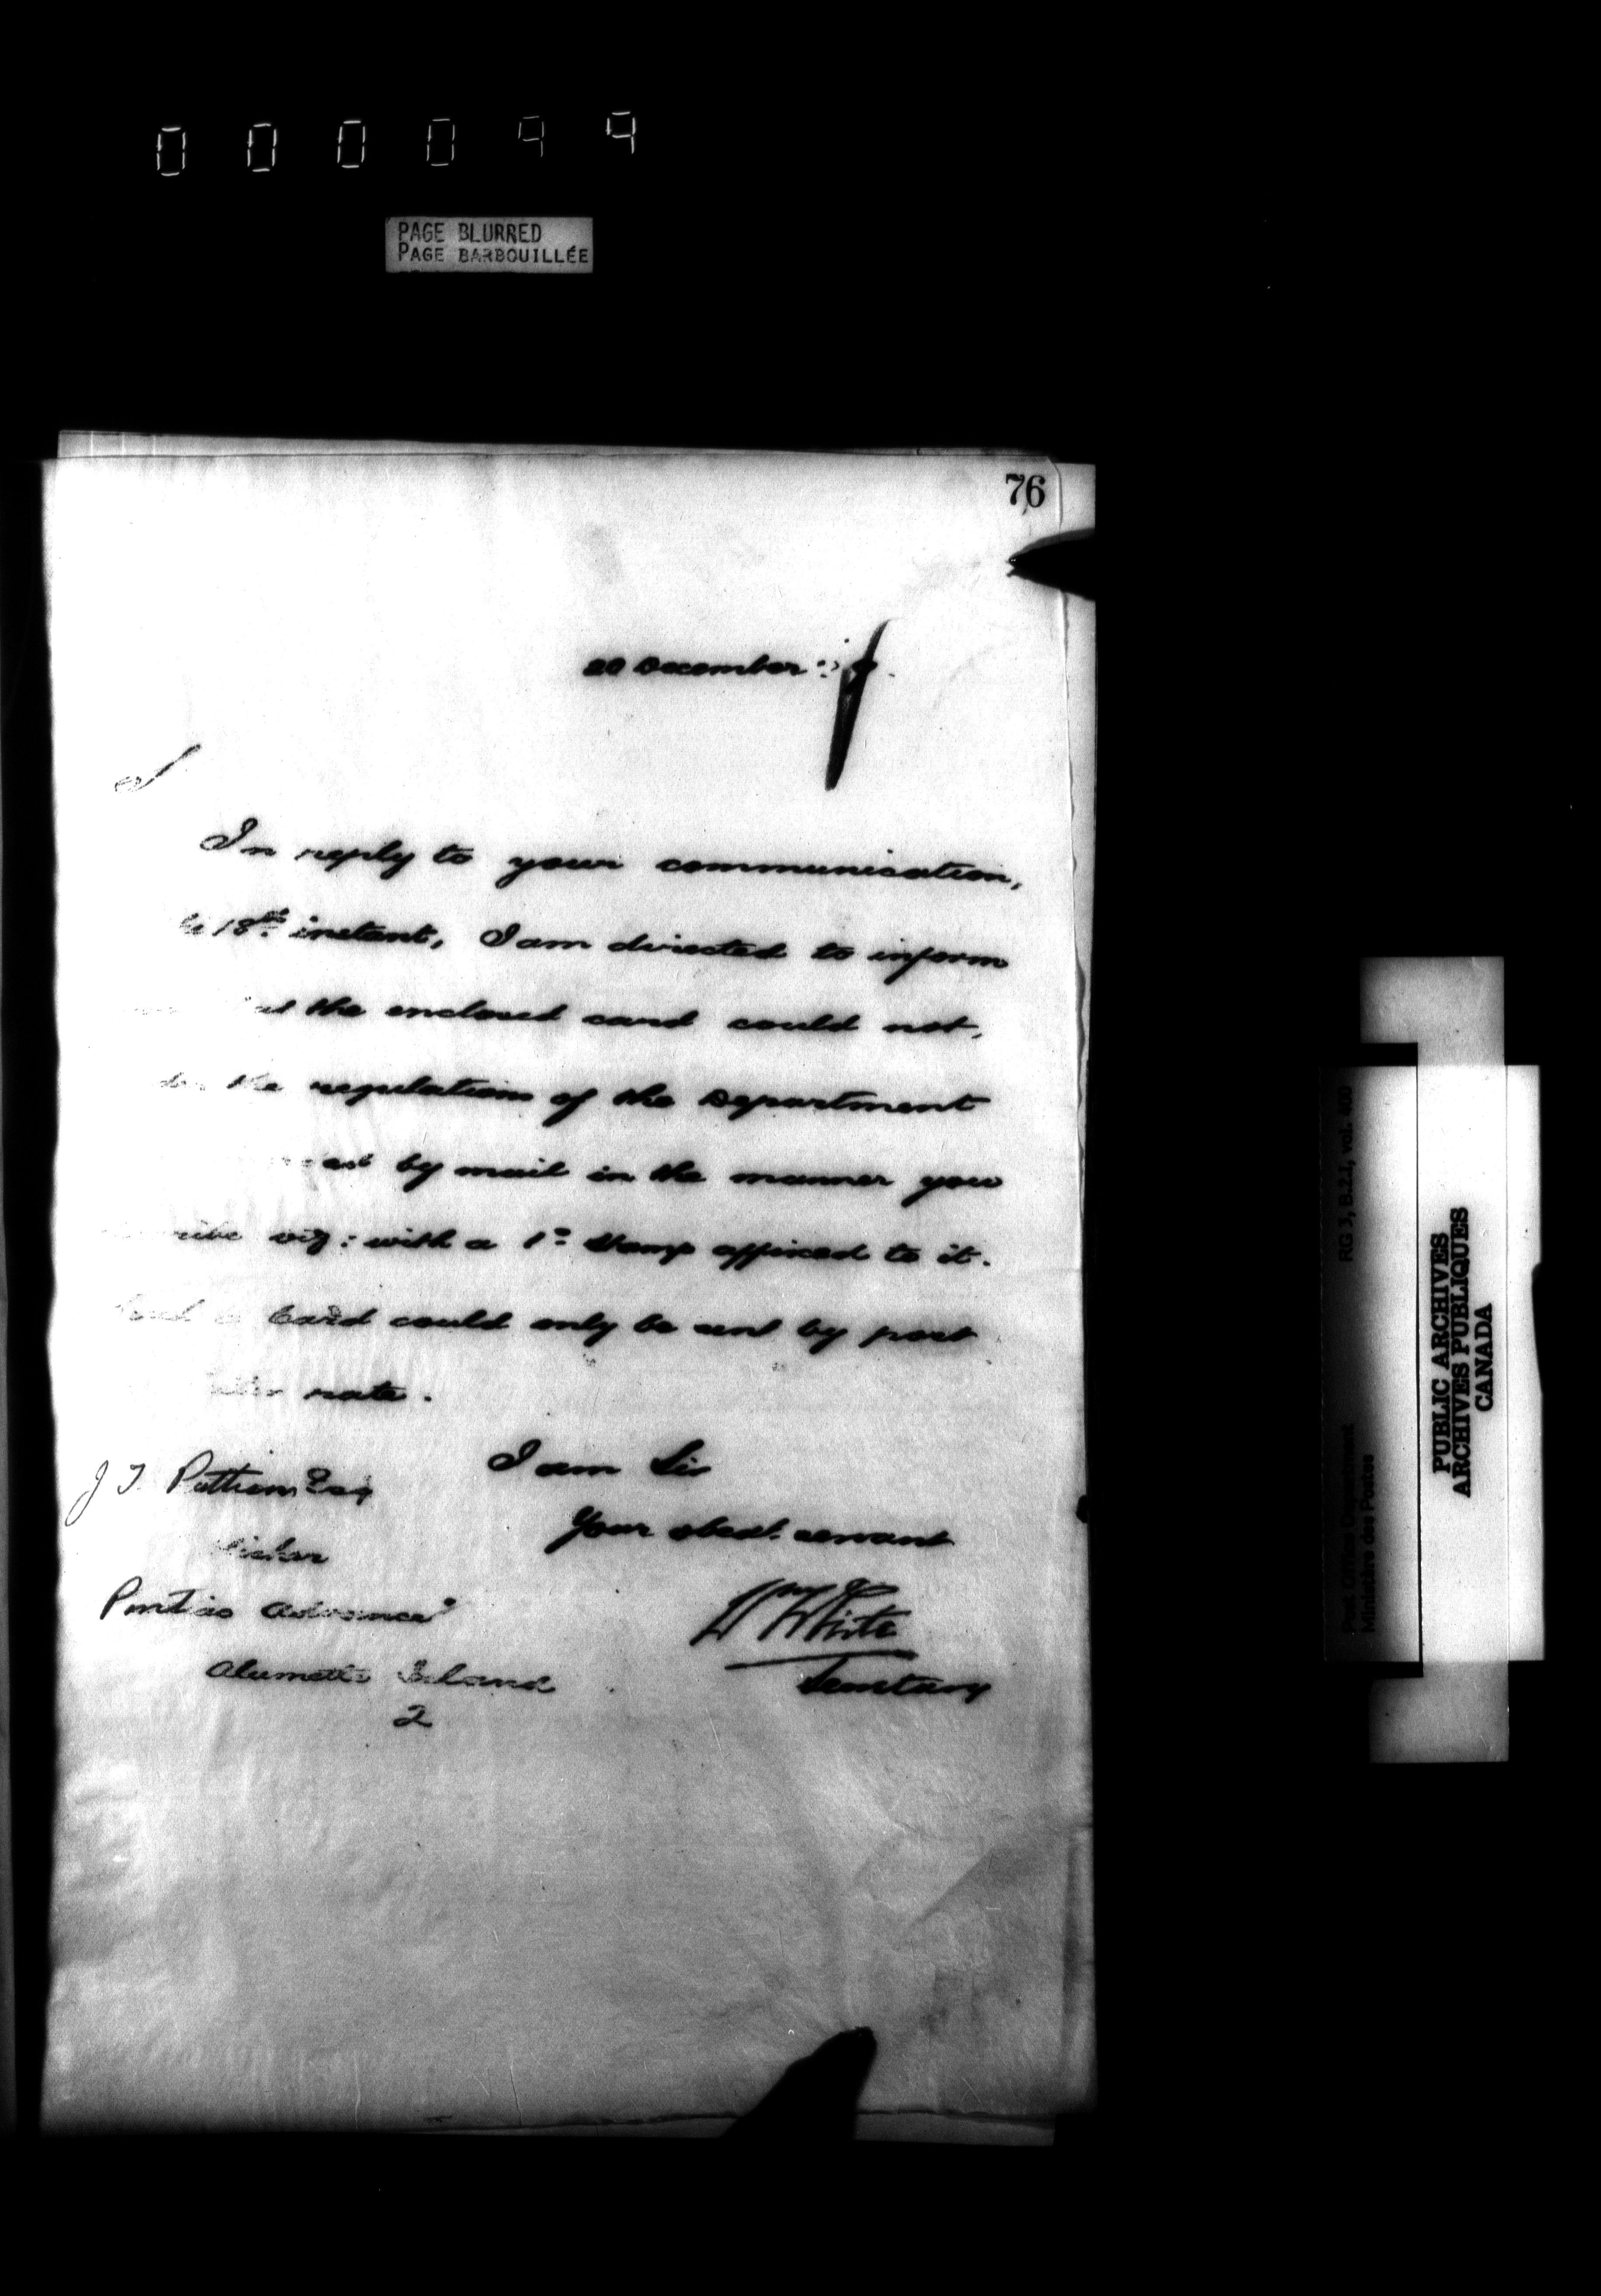 000099
PAGE BLURRED
PAGE BARBOUILLÉE
76
20 December
In reply to your communication,
18th instant, I am directed to inform
the enclosed card could not,
the regulations of the Department
by mail in the manner you
viz: with a 1c stamp affixed to it.
Card could only be sent by post
rate.
I am Sir
Your obedt. servant
Wm White
Secretary
J T Pattison Esq
Pontiac Advance
Alumette Island
2
RG 3, B.2.1, vol. 400
Post Office Department
Ministère des Postes
PUBLIC ARCHIVES
ARCHIVES PUBLIQUES
CANADA